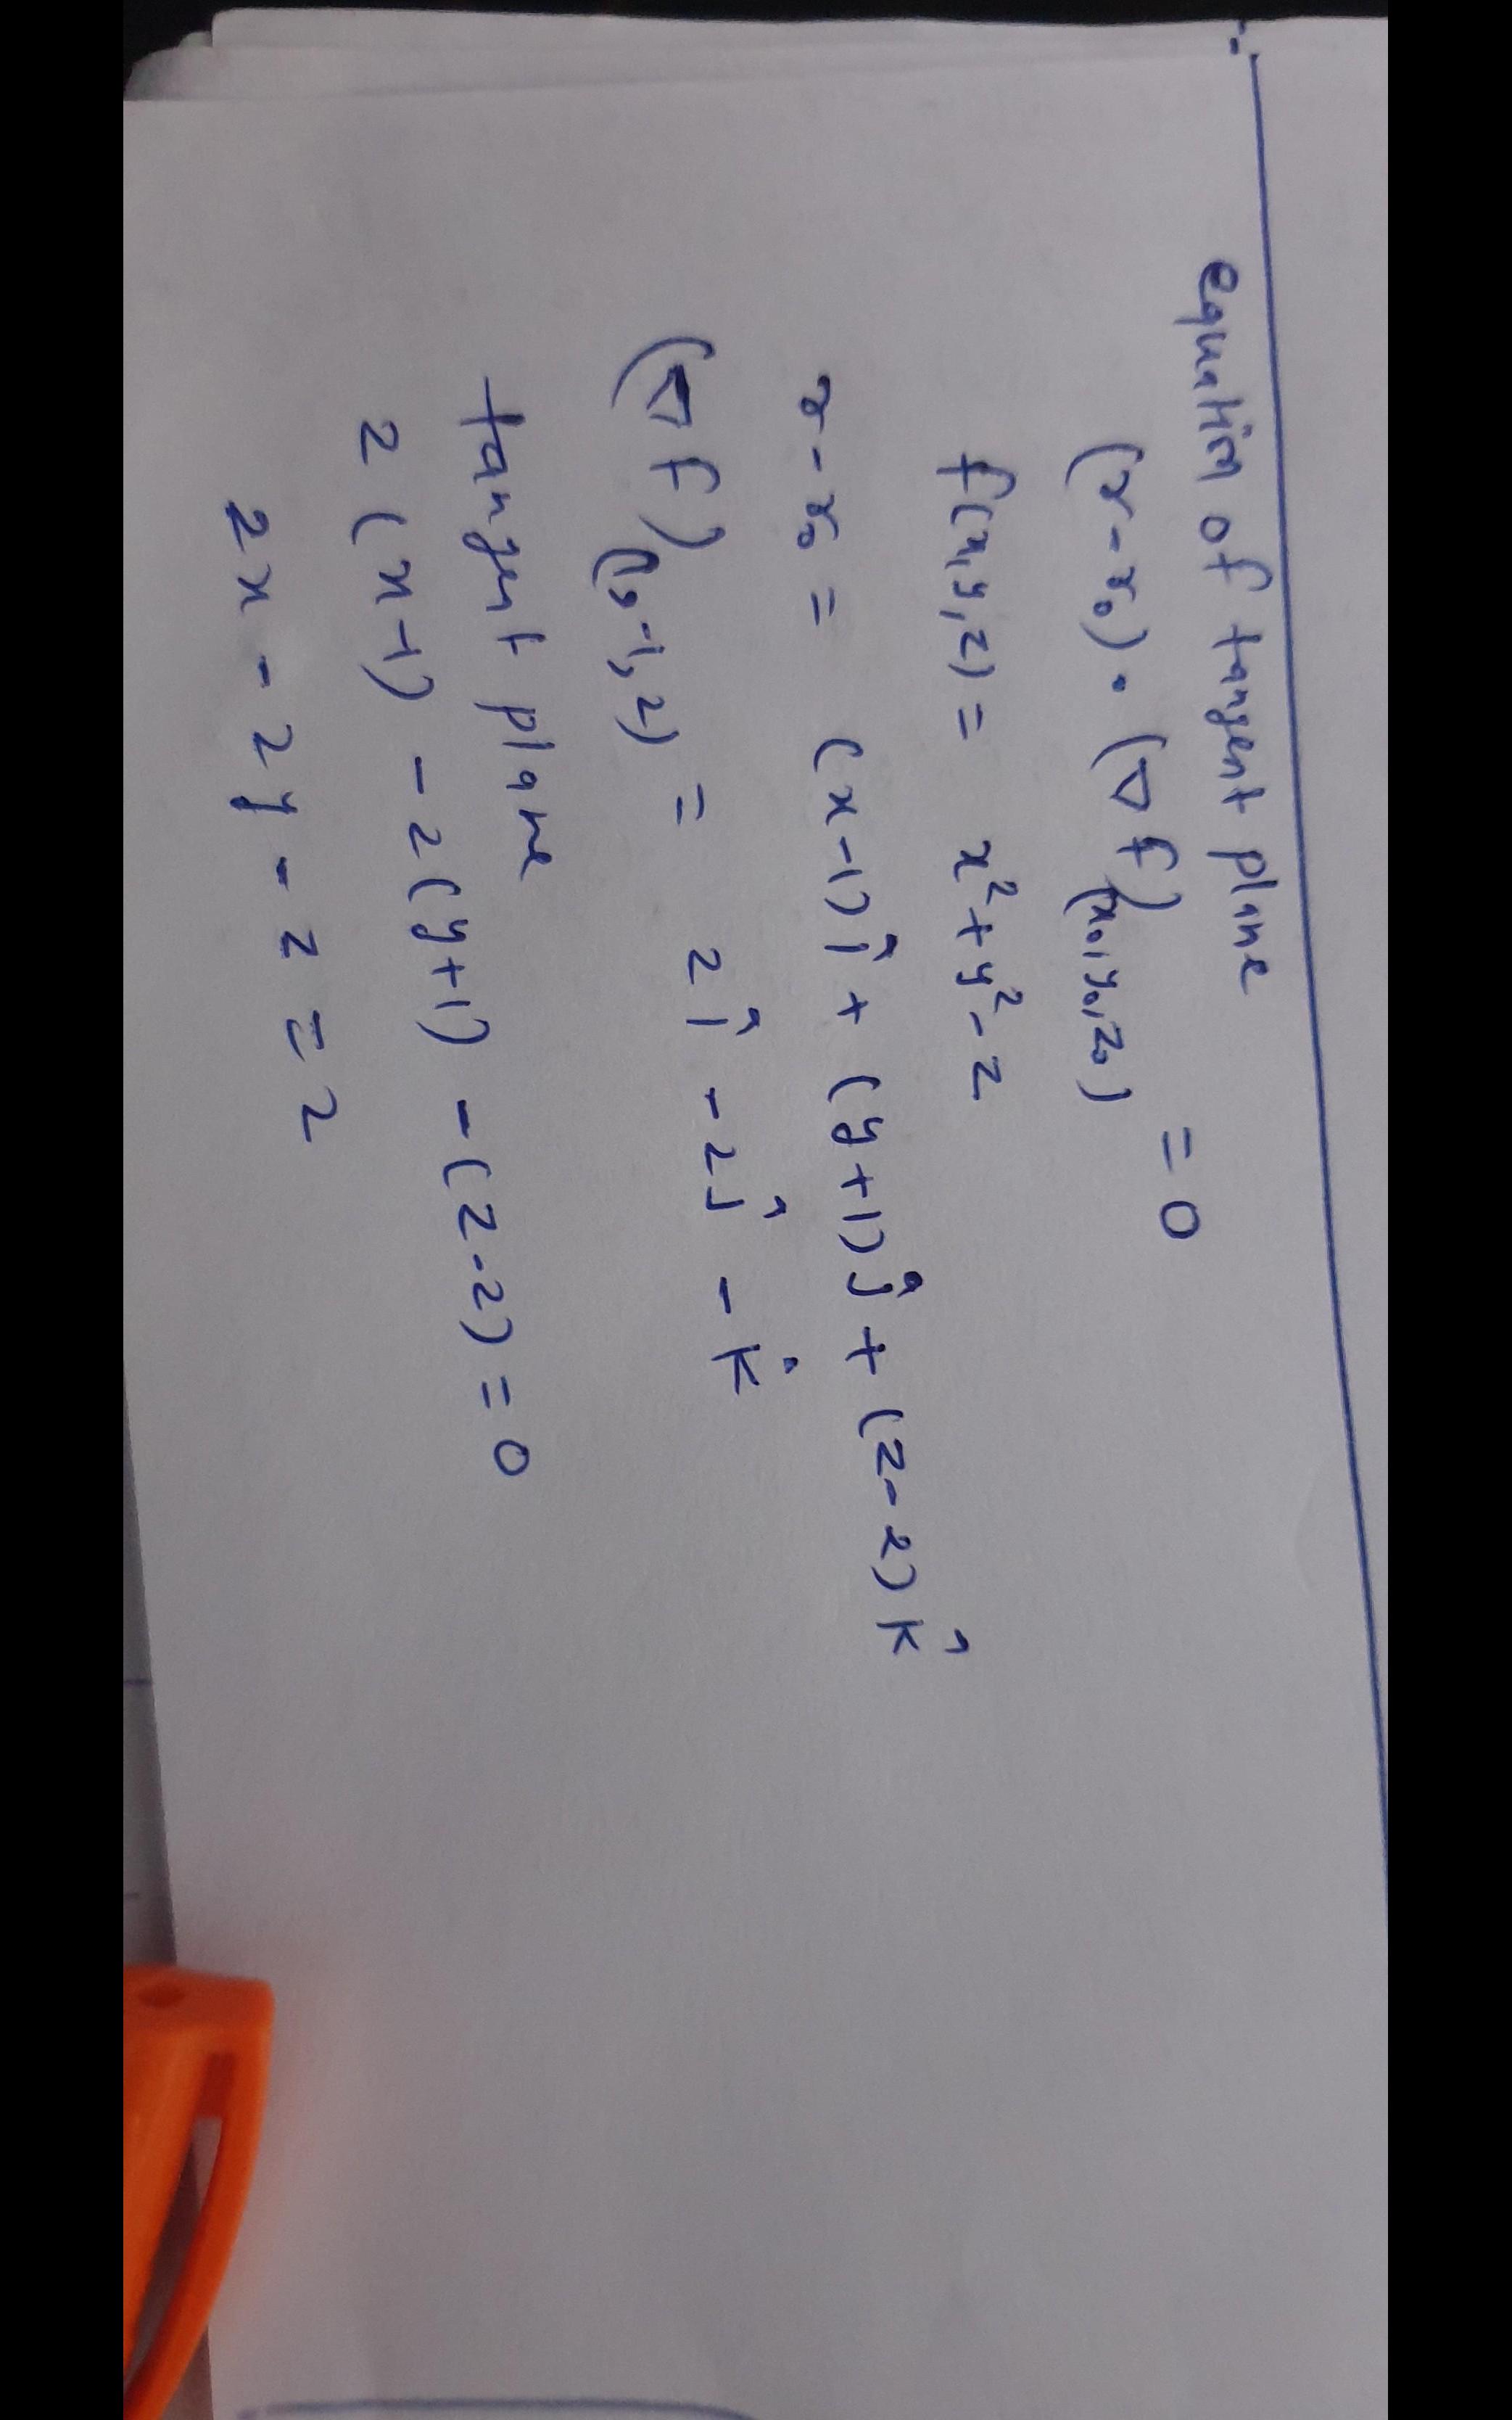 equation of tangent plane
(r - r₀) • (∇f)(x₀, y₀, z₀) = 0
f(x, y, z) = x² + y² - z
r - r₀ = (x-1)î + (y+1)ĵ + (z-2)k̂
(∇f)(1, -1, 2) = 2î - 2ĵ - k̂
tangent plane
2(x-1) - 2(y+1) - (z-2) = 0
2x - 2y - z = 2